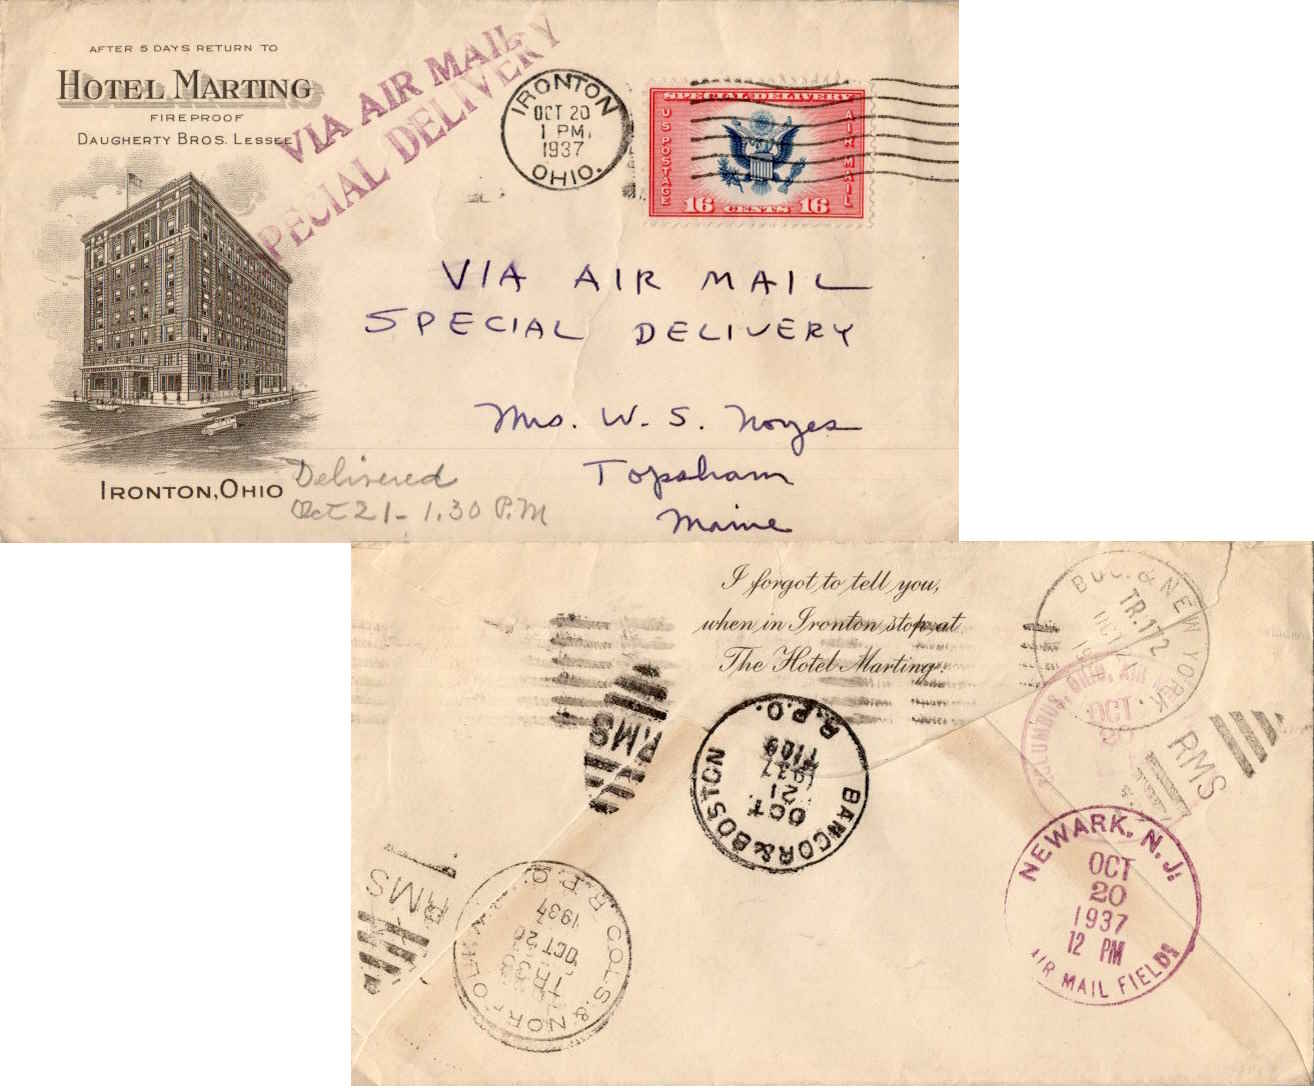 AFTER 5 DAYS RETURN TO
HOTEL MARTING
FIREPROOF
DAUGHERTY BROS. LESSEE
IRONTON, OHIO
VIA AIR MAIL
SPECIAL DELIVERY
IRONTON
OCT 20
1 PM
1937
OHIO.
SPECIAL DELIVERY
US POSTAGE
AIR MAIL
16 CENTS 16
VIA AIR MAIL
SPECIAL DELIVERY
Mrs. W. S. Noyes
Topsham
Maine
Delivered
Oct 21 - 1.30 P.M
I forgot to tell you,
when in Ironton stop at
The Hotel Marting.
& NEW YORK
TR.172
OCT
RMS
COLUMBUS, OHIO, AIR
OCT
20
RMS
BANGOR & BOSTON
R.P.O.
T109
1937
21
OCT
NEWARK, N.J.
OCT
20
1937
12 PM
AIR MAIL FIELDS
RMS
COLS. &
R.P.O.
1937
OCT 20
TR38